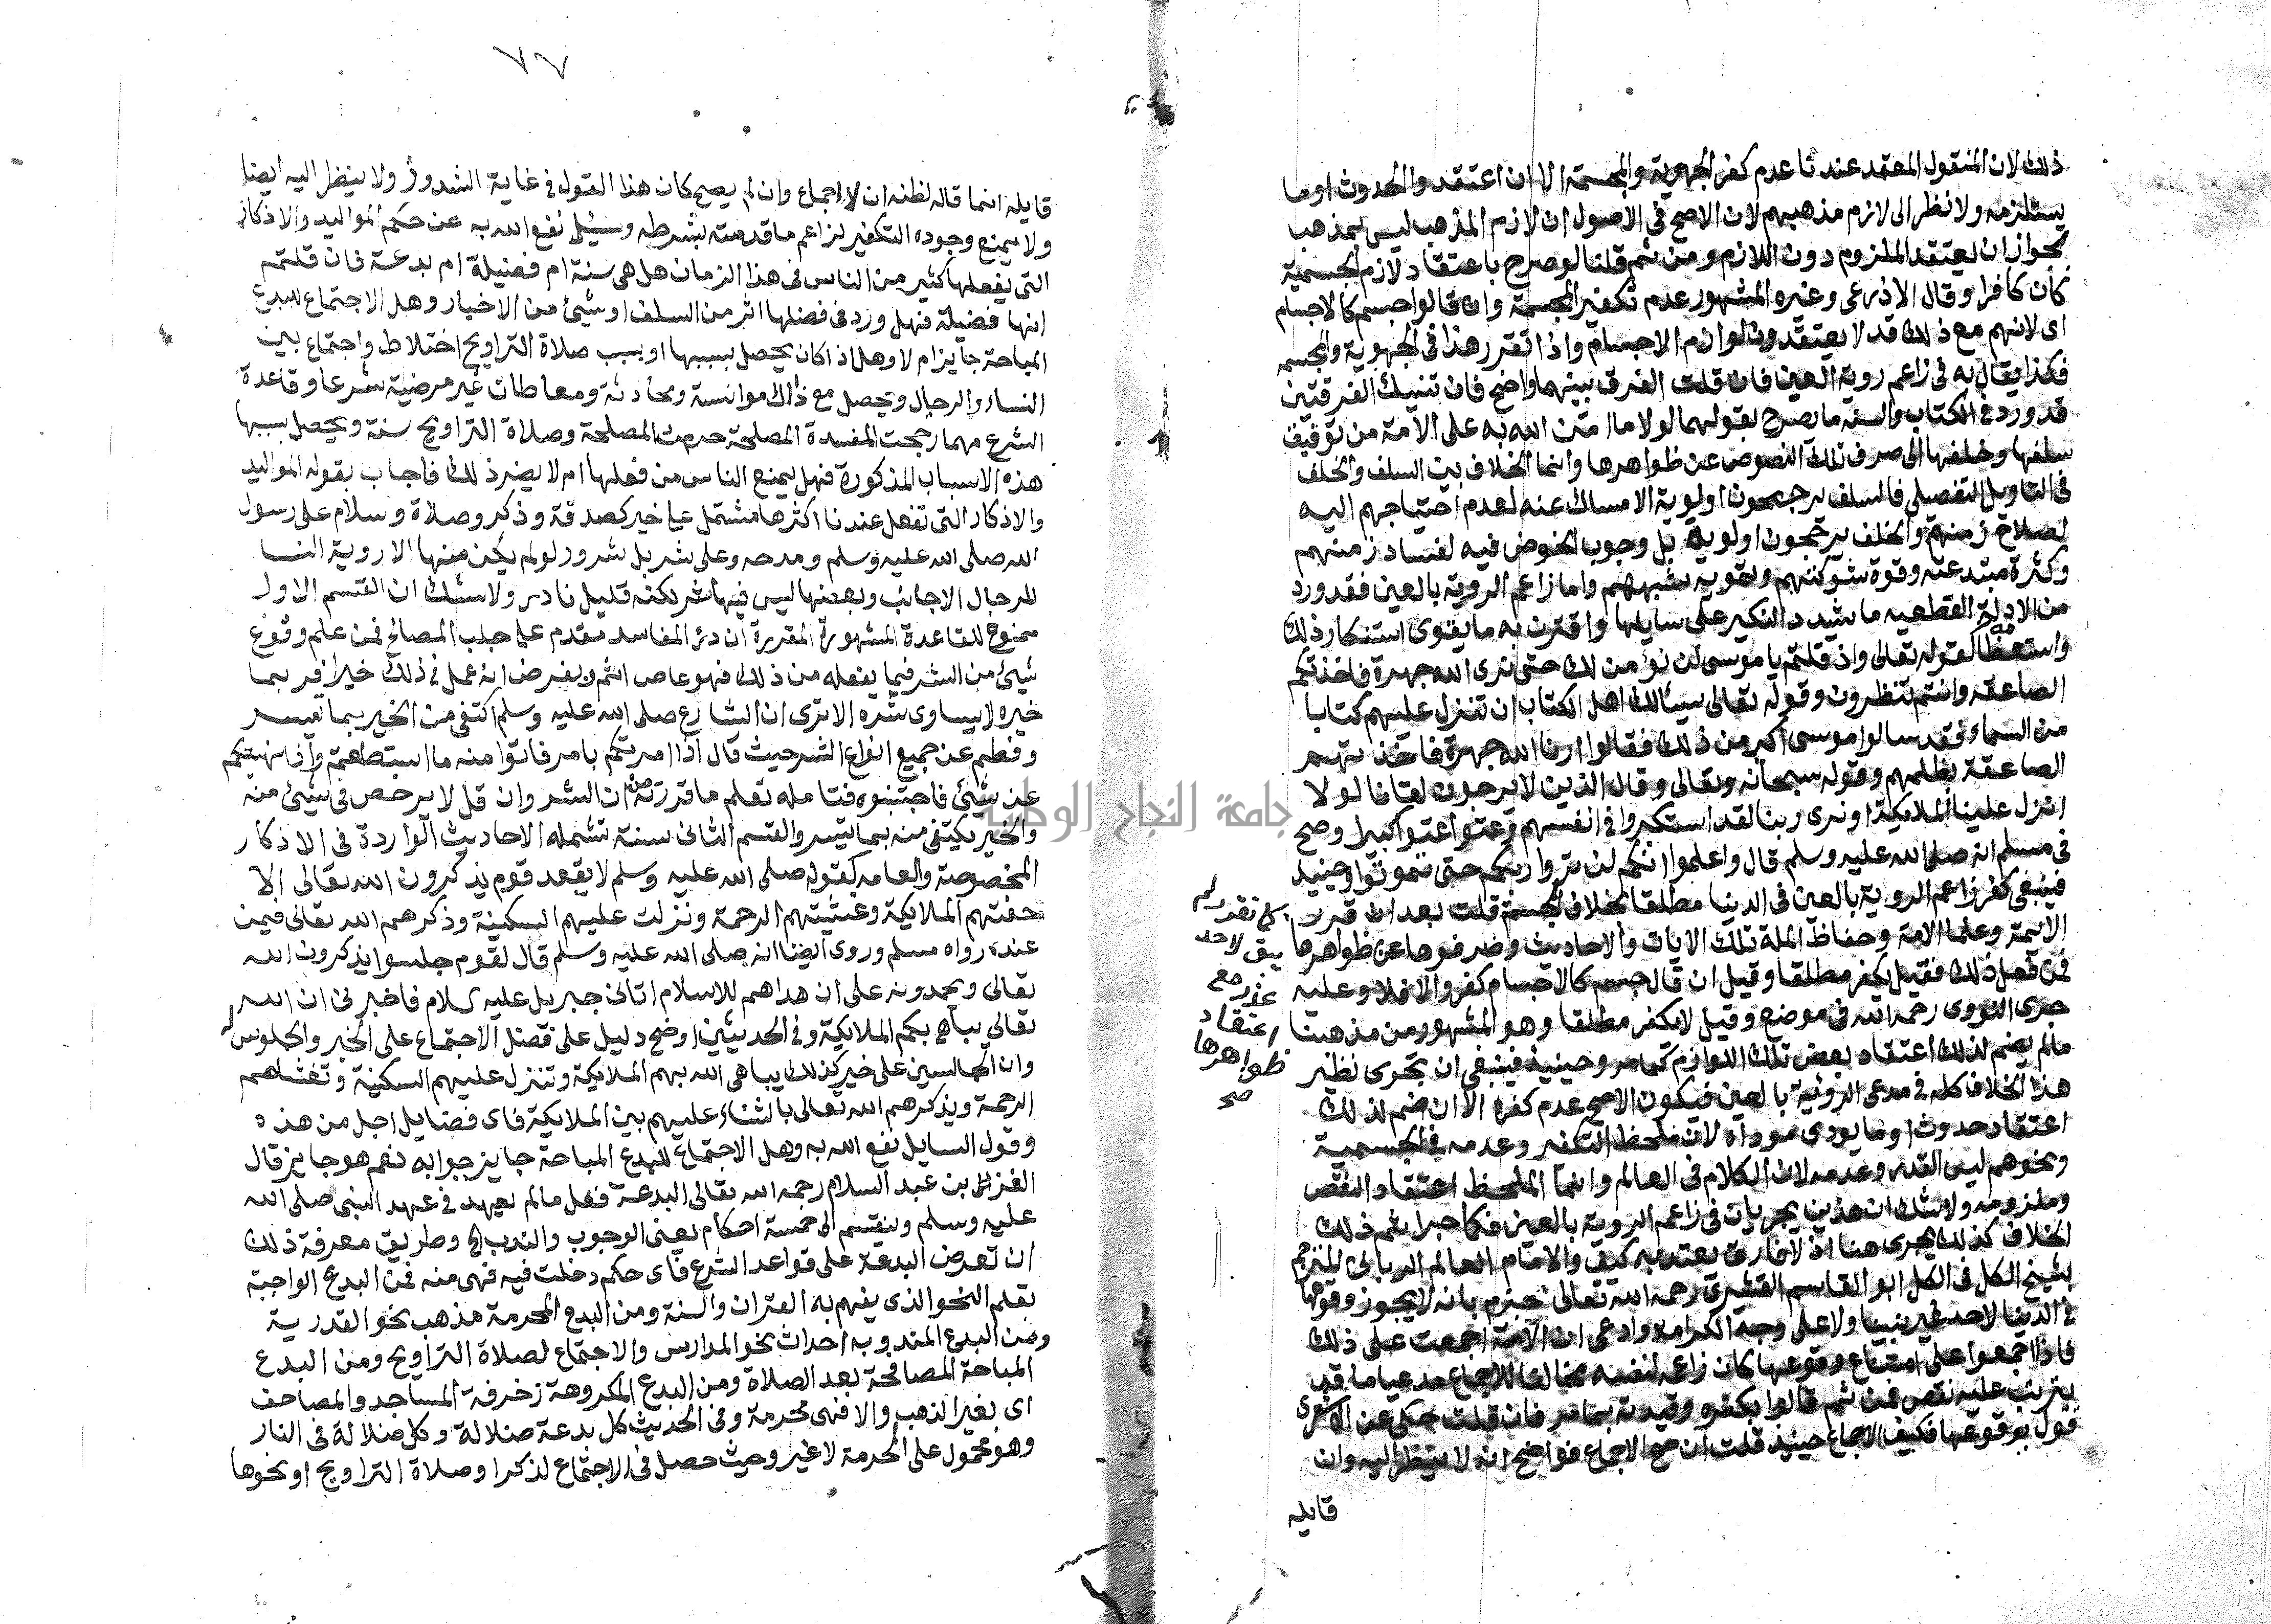 ذلك لان المنقول المعتمد عندنا عدم كفر الجهوية والمجسمة الا ان اعتقدوا الحدوث او ما
يستلزمه ولا نظر الى لازم مذهبهم لان الاصح في الاصول ان لازم المذهب ليس بمذهب
لجواز ان يعتقد الملزوم دون اللازم ومن ثم قلنا لو صرح باعتقاد لازم الجسمية
كان كافرا وقال الاذرعي وغيره المشهور عدم تكفير المجسمة وان قالوا جسم كالاجسام
اي لانهم مع ذلك قد لا يعتقدون لوازم الاجسام واذا تقرر هذا في الجهوية والمجسمه
فكذا يقال به في زاعم روية العين فان قلت الفرق بينهما واضح فان تينك الفرقتين
قد ورد في الكتاب والسنه ما يصرح بقولهما لولا ما امتن الله به على الامة من توفيق
سلفها وخلفها الى صرف تلك النصوص عن ظواهرها وانما الخلاف بين السلف والخلف
في التاويل التفصيلي فالسلف يرجحون اولوية الامساك عنه لعدم احتياجهم اليه
لصلاح زمنهم والخلف يرجحون اولوية بل وجوب الخوض فيه لفساد زمنهم
وكثرة مبتدعته وقوة شوكتهم وتمويه شبههم واما زاعم الروية بالعين فقد ورد
من الادلة القطعيه ما شدد النكير على سايلها واقترن به ما يقوى استنكار ذلك
واستعظامه كقوله تعالى واذ قلتم يا موسى لن نؤمن لك حتى نرى الله جهرة فاخذتكم
الصاعقه وانتم تنظرون وقوله تعالى يسئالك اهل الكتاب ان تنزل عليهم كتابا
من السماء فقد سالوا موسى اكبر من ذلك فقالوا ارنا الله جهرة فاخذتهم
الصاعقة بظلمهم وقوله سبحانه وتعالى وقال الذين لا يرجون لقانا لولا
انزل علينا الملايكة او نرى ربنا لقد استكبروا في انفسهم وعتوا عتوا كبيرا وصح
في مسلم انه صلى الله عليه وسلم قال واعلموا انكم لن تروا ربكم حتى تموتوا وحينيذ
فينبغي كفر زاعم الروية بالعين في الدنيا مطلقا بخلاف الجسمة قلت بعد ان قرر
الايمة وعلما الامة وحفاظ الملة تلك الايات والاحاديث وصرفوها عن ظواهرها
كما تقرر لم
يبق لاحد
عذر مع
اعتقاد
ظواهرها
صح
فمن فعل ذلك فقيل يكفر مطلقا وقيل ان قال جسم كالاجسام كفر والا فلا وعليه
جرى النووى رحمه الله في موضع وقيل لا يكفر مطلقا وهو المشهور من مذهبنا
مالم يضم لذلك اعتقاد بعض تلك اللوازم كما مر وحينيذ فينبغي ان يجرى نظير
هذا الخلاف كله في مدعى الروية بالعين فيكون الاصح عدم كفره الا ان ضم لذلك
اعتقاد حدوث او ما يودى موداه لان ملحظ التكفير وعدمه في الجسمية
ونحوهم ليس القدم وعدمه لان الكلام في العالم وانما الملحظ اعتقاد النقص
وملزومه ولا شك ان هذين يجريان في زاعم الروية بالعين فكما جرا ثم ذلك
الخلاف كذلك يجرى هنا اذ لا فارق يعتد به كيف والامام العالم الرباني المترجم
بشيخ الكل في الكل ابو القاسم القشيرى رحمه الله تعالى جزم بانه لا يجوز وقوعها
في الدنيا لاحد غير نبينا ولا على وجه الكرامة وادعى ان الامة اجمعت على ذلك
فاذا اجمعوا على امتناع وقوعها كان زاعمه لنفسه مخالفا للاجماع مدعيا ما قد
يترتب عليه نقص فمن ثم قالوا بكفره وقيدته بما مر فان قلت حكى عن الاشعرى
قول بوقوعها فكيف الاجماع حينيذ قلت ان صح الاجماع فواضح انه لا ينظر اليه وان
قايله
٧٧
قايله انما قاله لظنه ان لا اجماع وان لم يصح كان هذا القول في غاية الشذوذ ولا ينظر اليه ايضا
ولا يمنع وجوده التكفير لزاعم ما قدمته بشرطه وسئيل نفع الله به عن حكم المواليد والاذكار
التي يفعلها كثير من الناس في هذا الزمان هل هي سنة ام فضيلة ام بدعة فان قلتم
انها فضيلة فهل ورد في فضلها اثر من السلف او شيئ من الاخبار وهل الاجتماع للبدع
المباحة جايز ام لا وهل اذا كان يحصل بسببها او بسبب صلاة التراويح اختلاط واجتماع بين
النساء والرجال ويحصل مع ذلك موانسة ومحادثة ومعاطات غير مرضية شرعا وقاعدة
الشرع مهما رجحت المفسدة المصلحة حرمت المصلحة وصلاة التراويح سنة ويحصل بسببها
هذه الاسباب المذكورة فهل يمنع الناس من فعلها ام لا يضر ذلك فاجاب بقوله المواليد
والاذكار التي تفعل عندنا اكثرها مشتمل على خير كصدقة وذكر وصلاة وسلام على رسول
الله صلى الله عليه وسلم ومدحه وعلى شر بل شرور لو لم يكن منها الا روية النسا
للرجال الاجانب وبعضها ليس فيها شر لكنه قليل نادر ولا شك ان القسم الاول
ممنوع للقاعدة المشهورة المقررة ان درء المفاسد مقدم على جلب المصالح فمن علم وقوع
شيئ من الشر فيما يفعله من ذلك فهو عاص اثم وبفرض انه عمل في ذلك خيرا فربما
خيره لا يساوى شره الا ترى ان الشارع صلى الله عليه وسلم اكتفى من الخير بما تيسر
وفطم عن جميع انواع الشر حيث قال اذا امرتكم بامر فاتوا منه ما استطعتم واذا نهيتكم
عن شيئ فاجتنبوه فتامله تعلم ما قررته من ان الشر وان قل لا يرخص في شيئ منه
والخير يكتفى منه بما تيسر والقسم الثاني سنة تشمله الاحاديث الواردة في الاذكار
المخصوصة والعامه كقوله صلى الله عليه وسلم لا يقعد قوم يذكرون الله تعالى الا
حفتهم الملايكة وغشيتهم الرحمة ونزلت عليهم السكينة وذكرهم الله تعالى فيمن
عنده رواه مسلم وروى ايضا انه صلى الله عليه وسلم قال لقوم جلسوا يذكرون الله
تعالى ويحمدونه على ان هداهم للاسلام اتاني جبريل عليه السلام فاخبرني ان الله
تعالي يباهي بكم الملايكة وفي الحديثين اوضح دليل على فضل الاجتماع على الخير والجلوس له
وان الجالسين على خير كذلك يباهي الله بهم الملايكة وتنزل عليهم السكينة وتغشاهم
الرحمة ويذكرهم الله تعالى بالثناء عليهم بين الملايكة فاى فضايل اجل من هذه
وقول السايل نفع الله به وهل الاجتماع للبدع المباحة جايز جوابه نعم هو جايز قال
العز بن عبد السلام رحمه الله تعالى البدعة فعل مالم يعهد في عهد النبي صلى الله
عليه وسلم وينقسم الى خمسة احكام يعنى الوجوب والندب الخ وطريق معرفة ذلك
ان تعرض البدعة على قواعد الشرع فاى حكم دخلت فيه فهي منه فمن البدع الواجبة
تعلم النحو الذى يفهم به القران والسنة ومن البدع المحرمة مذهب نحو القدرية
ومن البدع المندوبه احداث نحو المدارس والاجتماع لصلاة التراويح ومن البدع
المباحة المصافحة بعد الصلاة ومن البدع المكروهة زخرفة المساجد والمصاحف
اى بغير الذهب والا فهى محرمة وفي الحديث كل بدعة ضلالة وكل ضلالة في النار
وهو محمول على المحرمة لا غير وحيث حصل في الاجتماع لذكر او صلاة التراويح او نحوها
جامعة النجاح الوطنية